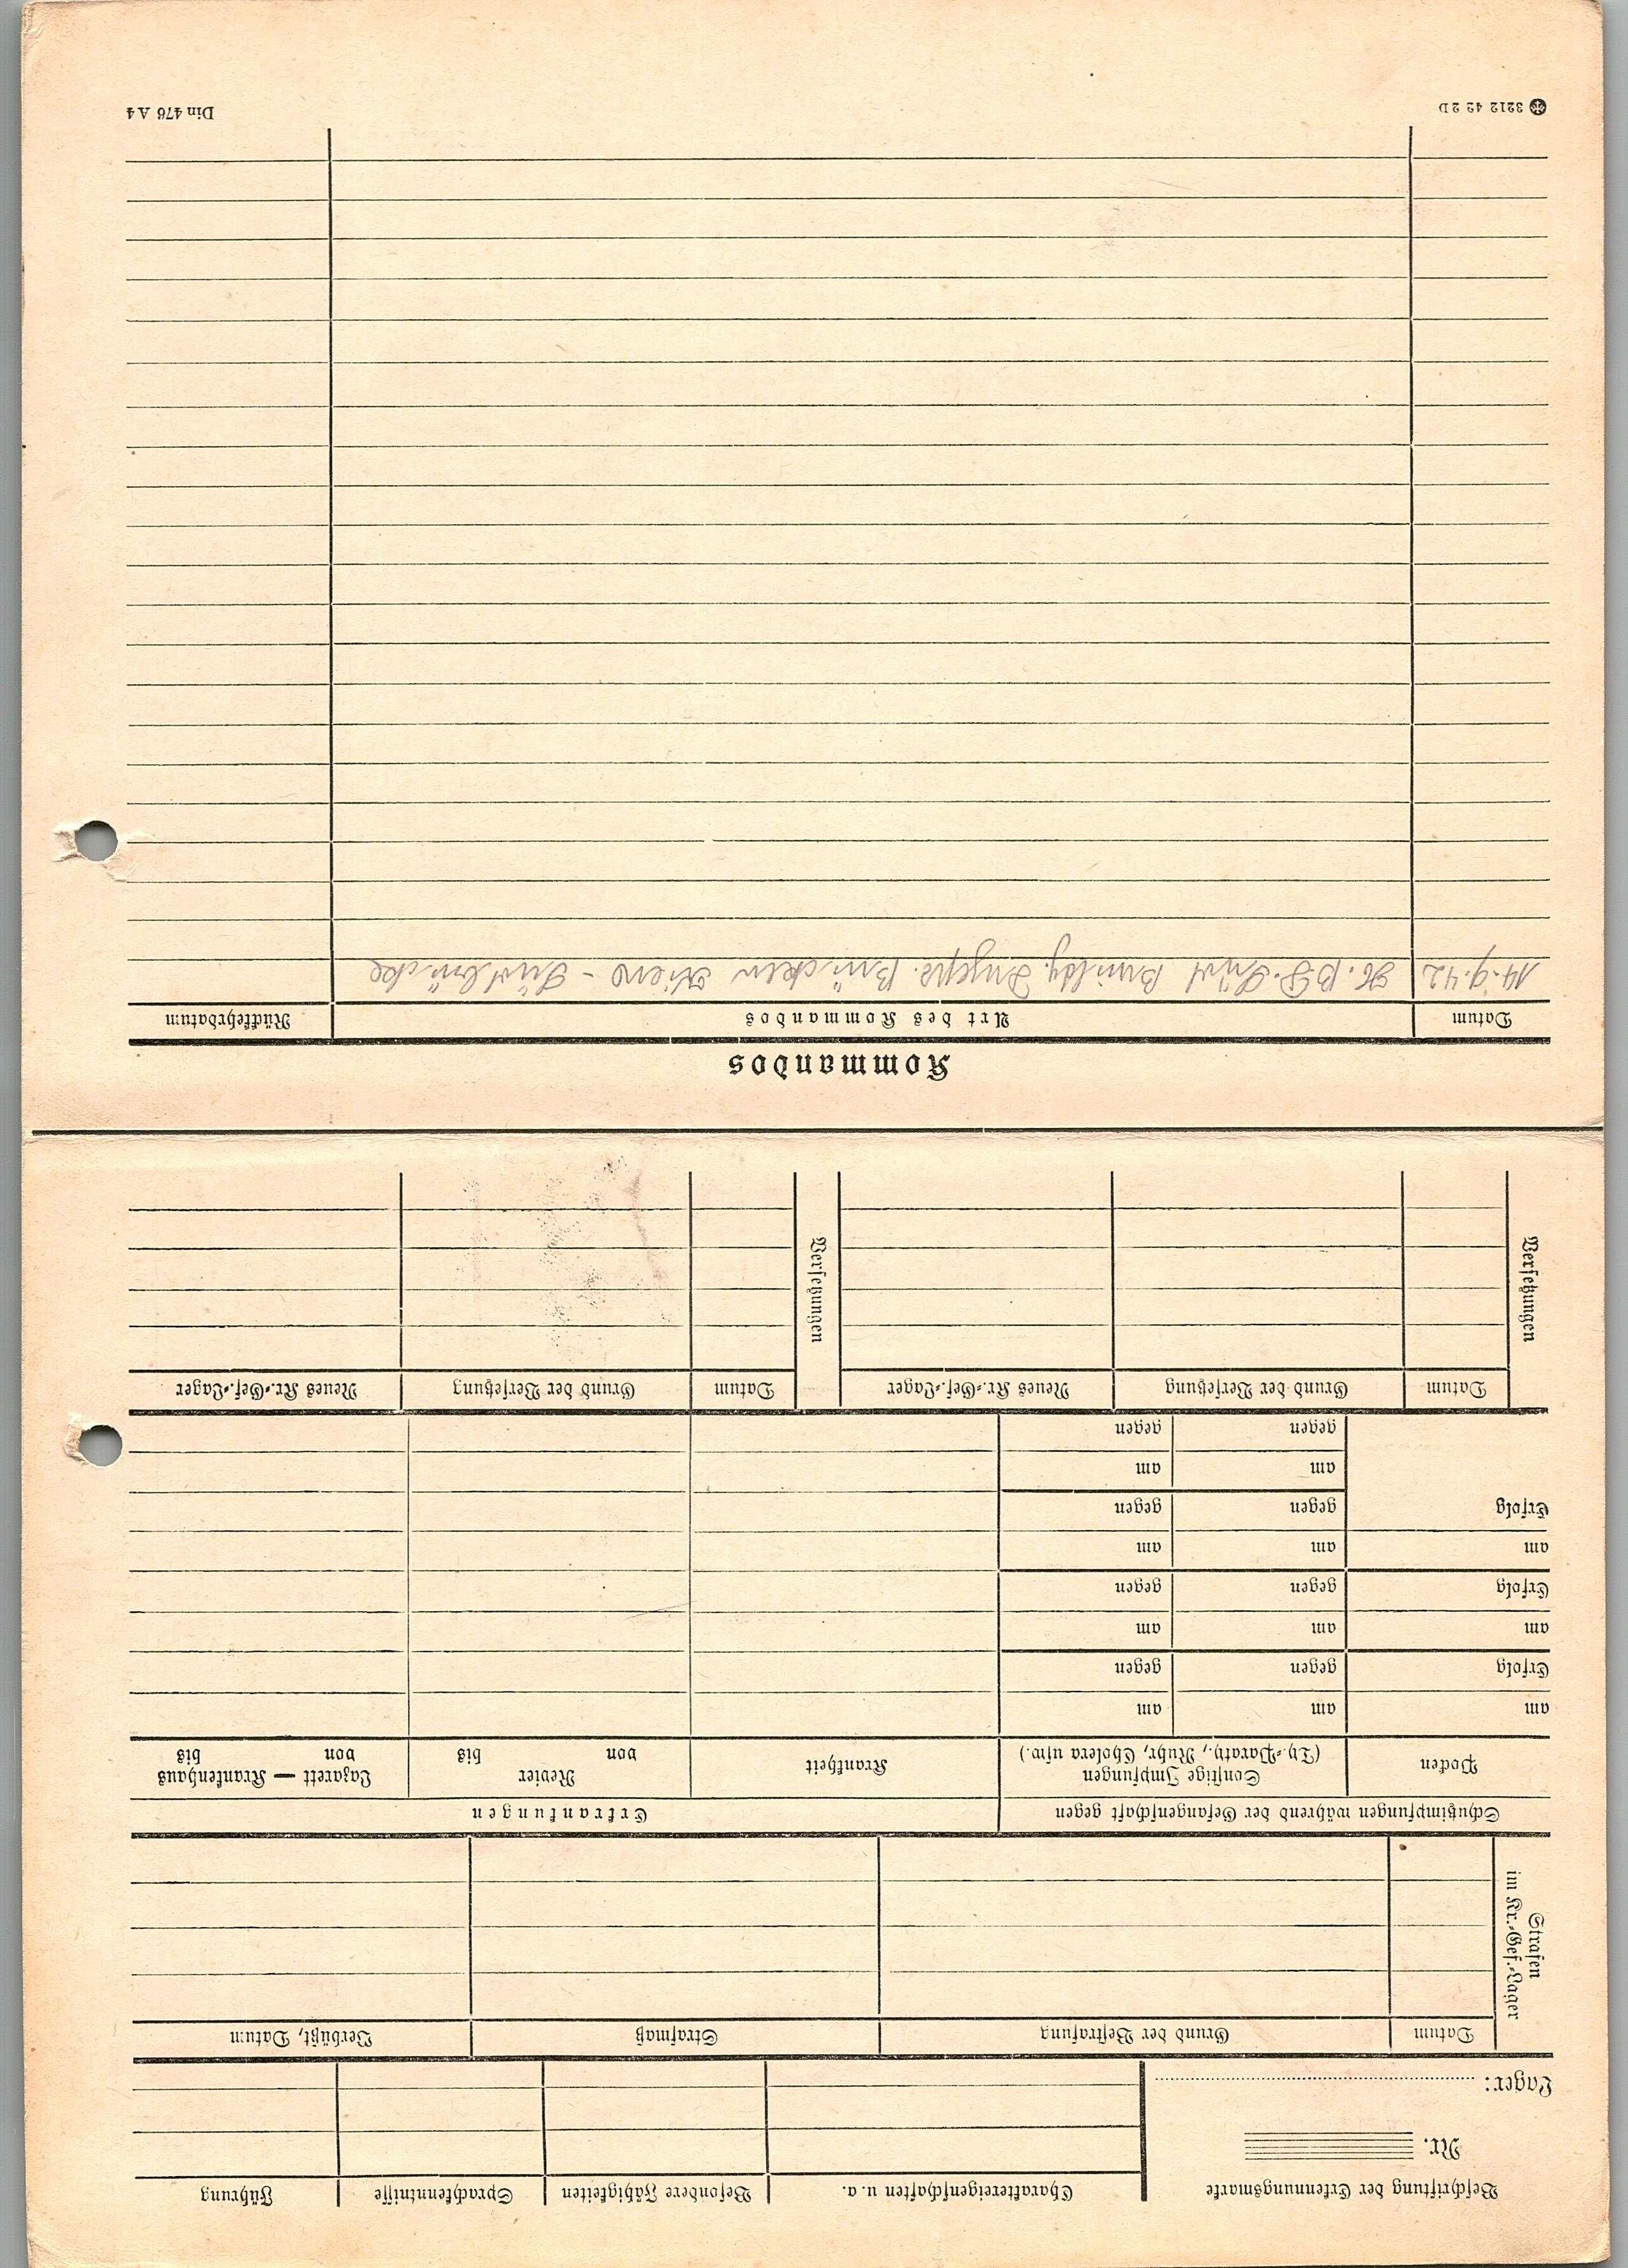 Beschriftung der Erkennungsmarke
Nr.
Lager:
Charaktereigenschaften u. a.
Besondere Fähigkeiten
Sprachkenntnisse
Führung
Strafen
im Kr.-Gef.-Lager
Datum
Grund der Bestrafung
Strafmaß
Verbüßt, Datum
Schutzimpfungen während der Gefangenschaft gegen
Erkrankungen
Pocken
Sonstige Impfungen
(Ty.-Paraty., Ruhr, Cholera usw.)
Krankheit
Revier
von bis
Lazarett — Krankenhaus
von bis
am am am
Erfolg gegen gegen
am am am
Erfolg gegen gegen
am am am
Erfolg gegen gegen
am am
gegen gegen
Versetzungen
Datum
Grund der Versetzung
Neues Kr.-Gef.-Lager
Versetzungen
Datum
Grund der Versetzung
Neues Kr.-Gef.-Lager
Kommandos
Datum
Art des Kommandos
Rückkehrdatum
14.9.42 Süd Brücken Kiew - Südbrücke
3212 42 2 D
Din 476 A 4